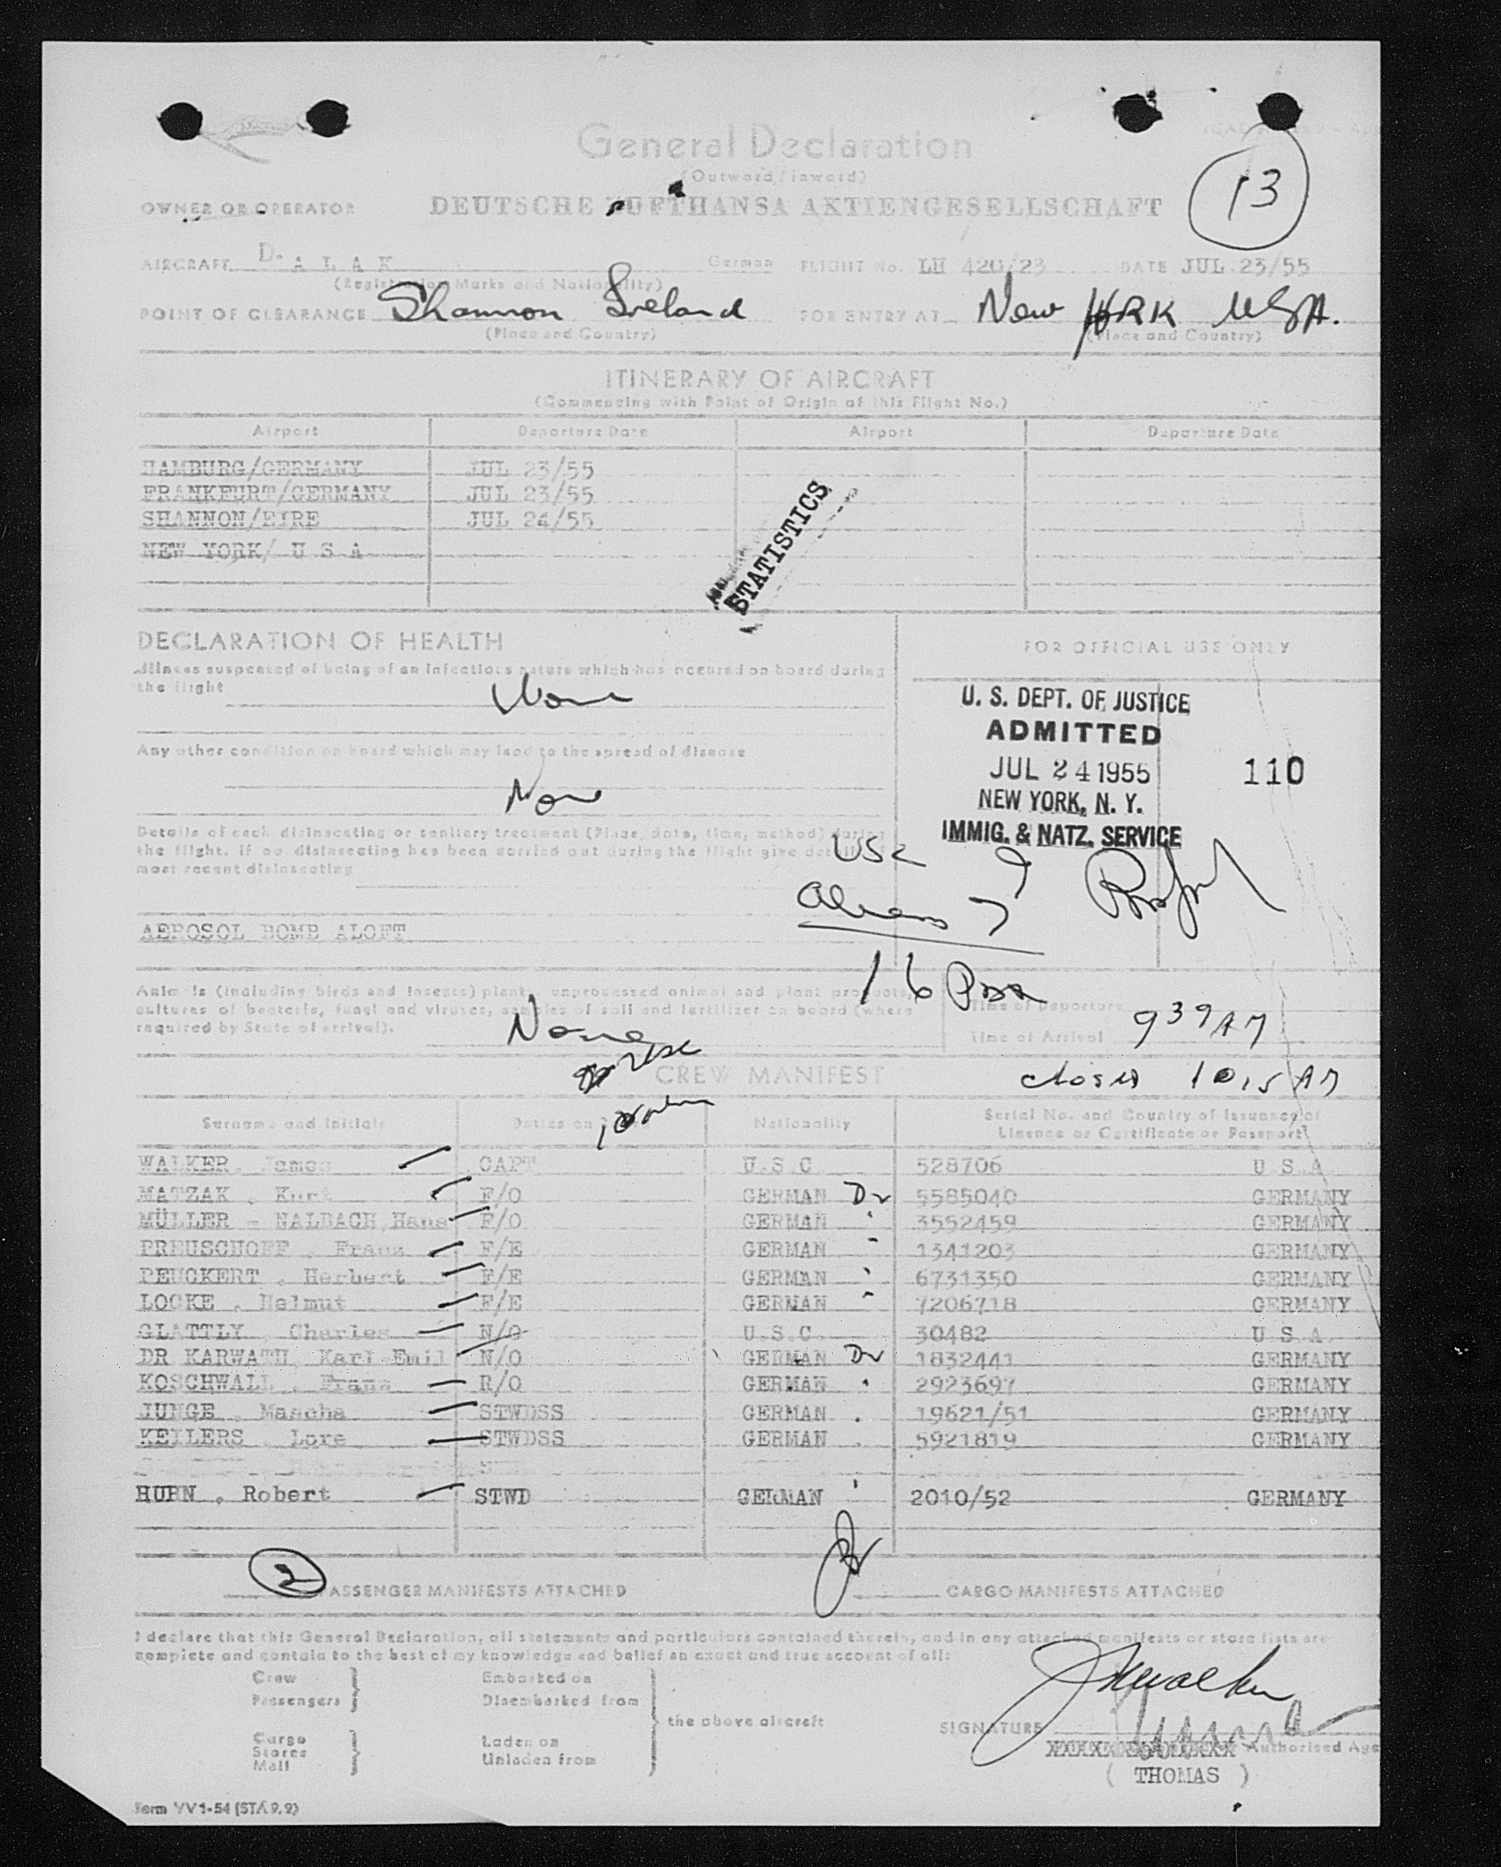 General Declaration
(Outward/inward)
13
OWNER OR OPERATOR DEUTSCHE LUFTHANSA AKTIENGESELLSCHAFT
AIRCRAFT D- A L A K German FLIGHT No. LH 420/23 DATE JUL 23/55
(Registration Marks and Nationality)
POINT OF CLEARANCE Shannon Ireland FOR ENTRY AT New YORK USA.
(Place and Country) (Place and Country)
ITINERARY OF AIRCRAFT
(Commencing with Point of Origin of this Flight No.)
Airport Departure Date Airport Departure Date
HAMBURG/GERMANY JUL 23/55
FRANKFURT/GERMANY JUL 23/55
SHANNON/EIRE JUL 24/55
NEW YORK/ U S A
STATISTICS
DECLARATION OF HEALTH
FOR OFFICIAL USE ONLY
Illness suspected of being of an infectious nature which has occured on board during
the flight None
U. S. DEPT. OF JUSTICE
ADMITTED
JUL 24 1955 110
NEW YORK, N. Y.
IMMIG. & NATZ. SERVICE
Any other condition on board which may lead to the spread of disease
None
Details of each disinsecting or sanitary treatment (Place, date, time, method) during
the flight. If no disinsecting has been carried out during the flight give details of
most recent disinsecting
USC 9
Aliens 7
16
AEROSOL BOMB ALOFT
Animals (including birds and insects) plants, unprocessed animal and plant products,
cultures of bacteria, fungi and viruses, samples of soil and fertilizer on board (where
required by State of arrival). None
Time of Departure
Time of Arrival 9 39 AM
Closed 10 15 AM
CREW MANIFEST
Surname and Initials Duties on Nationality Serial No. and Country of Issuance of
Licence or Certificate or Passport
WALKER, James CAPT U.S.C 528706 U S A
MATZAK , Kurt F/O GERMAN Dr 5585040 GERMANY
MÜLLER - NALBACH, Hans F/O GERMAN " 3552459 GERMANY
PREUSCHOFF , Franz F/E GERMAN " 1341203 GERMANY
PEUCKERT , Herbert F/E GERMAN " 6731350 GERMANY
LOCKE , Helmut F/E GERMAN " 7206718 GERMANY
GLATTLY , Charles N/O U.S.C. 30482 U S A.
DR KARWATH, Karl-Emil N/O GERMAN Dr 1832441 GERMANY
KOSCHWALL , Franz R/O GERMAN " 2923697 GERMANY
JUNGE , Mascha STWDSS GERMAN 19621/51 GERMANY
KEILERS , Lore STWDSS GERMAN 5921819 GERMANY
HUHN , Robert STWD GERMAN 2010/52 GERMANY
2 PASSENGER MANIFESTS ATTACHED CARGO MANIFESTS ATTACHED
I declare that this General Declaration, all statements and particulars contained therein, and in any attached manifests or store lists are
complete and contain to the best of my knowledge and belief an exact and true account of all:
Crew Embarked on
Passengers Disembarked from
the above aircraft
Cargo Laden on
Stores
Mail Unladen from
SIGNATURE JWalker
Authorised Age
( THOMAS )
Form VV1-54 (STA 9.9)